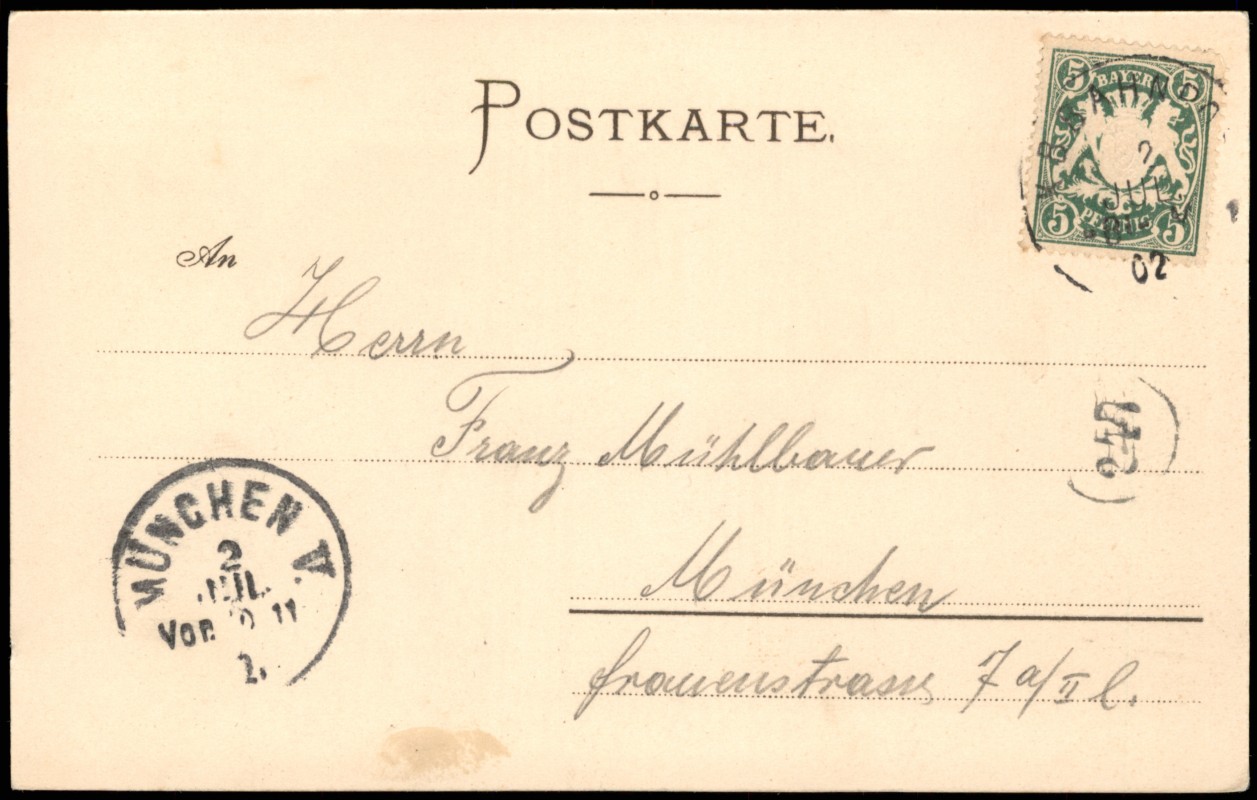 POSTKARTE.
5 BAYERN 5
2
JUL
5 PFENNIG 5
02
An
Herrn
Franz Mühlbauer
245
München
MÜNCHEN V
2
JUL.
VOR 11
2.
Frauenstrasse 7 a/II l.